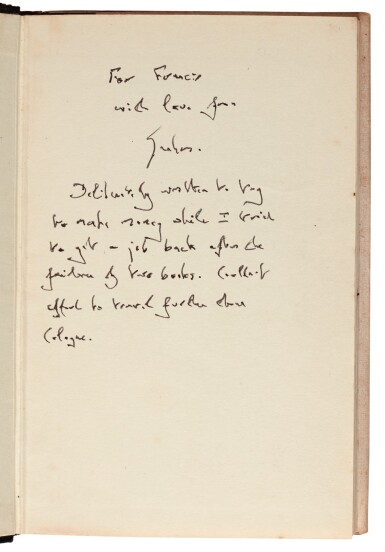 For Francis
with love from
Graham.
Deliberately written to try
to make money while I tried
to get a job back after the
failure of two books. Couldn't
afford to travel further than
Cologne.